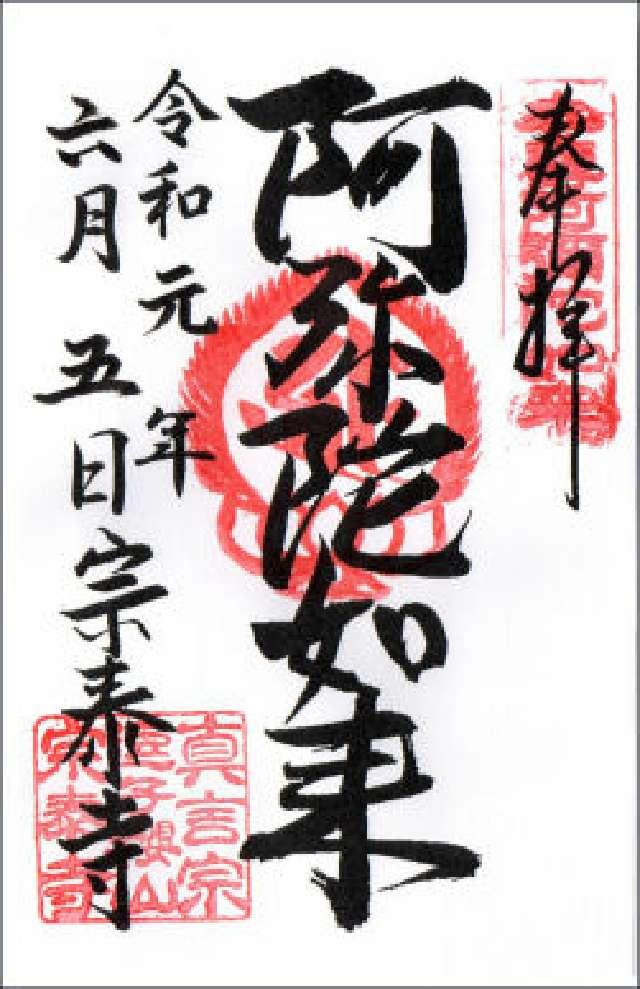 奉拝
阿弥陀如来
令和元年
六月五日
宗泰寺
真言宗
宗泰寺